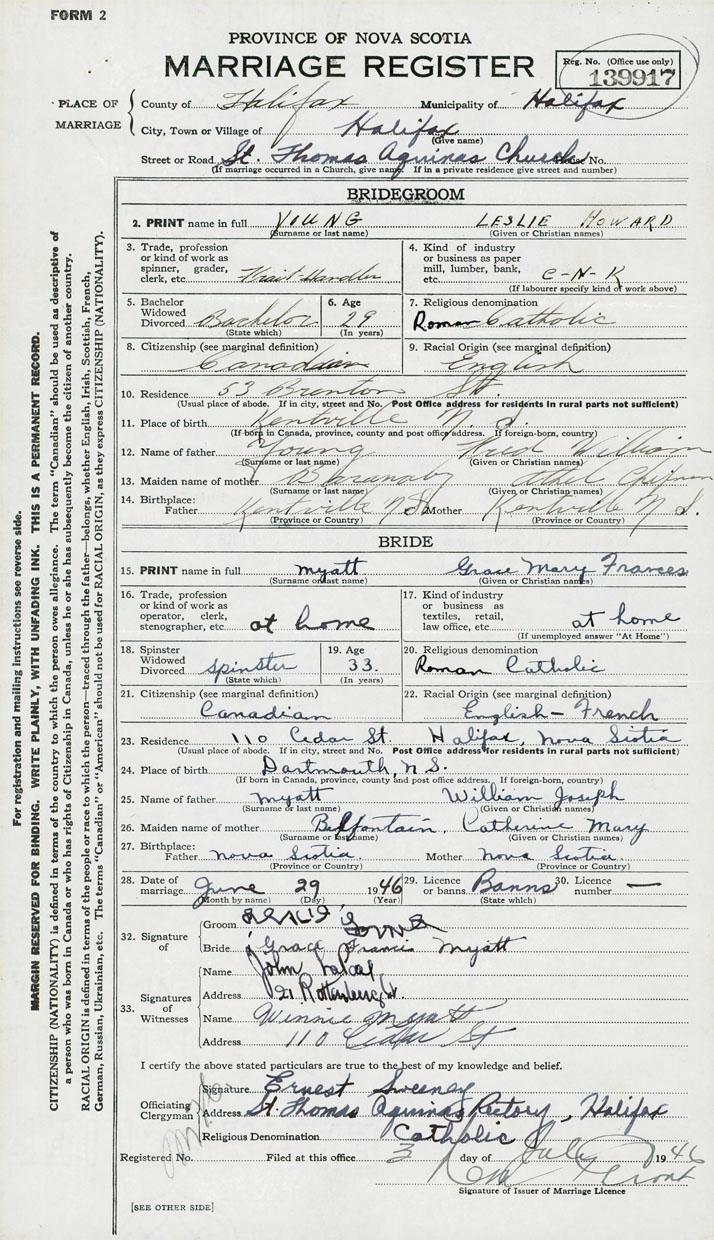 FORM 2
PROVINCE OF NOVA SCOTIA
MARRIAGE REGISTER
Reg. No. (Office use only)
139917
PLACE OF MARRIAGE
County of Halifax Municipality of Halifax
City, Town or Village of Halifax
(Give name)
Street or Road St. Thomas Aquinas Church House No.
(If marriage occurred in a Church, give name. If in a private residence give street and number)
BRIDEGROOM
2. PRINT name in full YOUNG LESLIE HOWARD
(Surname or last name) (Given or Christian names)
3. Trade, profession or kind of work as spinner, grader, clerk, etc.
4. Kind of industry or business as paper mill, lumber, bank, etc. C-N-R
(If labourer specify kind of work above)
5. Bachelor Widowed Divorced Bachelor
(State which)
6. Age 29
(In years)
7. Religious denomination Roman Catholic
8. Citizenship (see marginal definition) Canadian
9. Racial Origin (see marginal definition) English
10. Residence 53 Brenton St.
(Usual place of abode. If in city, street and No. Post Office address for residents in rural parts not sufficient)
11. Place of birth Kentville N. S.
(If born in Canada, province, county and post office address. If foreign-born, country)
12. Name of father Young Fred William
(Surname or last name) (Given or Christian names)
13. Maiden name of mother Ethel
(Surname or last name) (Given or Christian names)
14. Birthplace: Father Kentville N.S. Mother Kentville N. S.
(Province or Country) (Province or Country)
BRIDE
15. PRINT name in full myatt Grace Mary Frances
(Surname or last name) (Given or Christian names)
16. Trade, profession or kind of work as operator, clerk, stenographer, etc. at home
17. Kind of industry or business as textiles, retail, law office, etc. at home
(If unemployed answer "At Home")
18. Spinster Widowed Divorced Spinster
(State which)
19. Age 33.
(In years)
20. Religious denomination Roman Catholic
21. Citizenship (see marginal definition) Canadian
22. Racial Origin (see marginal definition) English-French
23. Residence 110 Cedar St. Halifax, Nova Scotia
(Usual place of abode. If in city, street and No. Post Office address for residents in rural parts not sufficient)
24. Place of birth Dartmouth, N.S.
(If born in Canada, province, county and post office address. If foreign-born, country)
25. Name of father myatt William Joseph
(Surname or last name) (Given or Christian names)
26. Maiden name of mother Belfontain, Catherine Mary
(Surname or last name) (Given or Christian names)
27. Birthplace: Father Nova Scotia. Mother Nova Scotia.
(Province or Country) (Province or Country)
28. Date of marriage June 29 1946
(Month by name) (Day) (Year)
29. Licence or banns Banns
(State which)
30. Licence number —
32. Signature of
Groom
Bride Grace Francis Myatt
33. Signatures of Witnesses
Name John
Address 21 Rottenberg St.
Name Winnie Myatt
Address 110 Cedar St
I certify the above stated particulars are true to the best of my knowledge and belief.
Officiating Clergyman
Signature Ernest Sweeney
Address St. Thomas Aquinas Rectory, Halifax
Religious Denomination Catholic
Registered No. Filed at this office 3 day of July 1946
Signature of Issuer of Marriage Licence
[SEE OTHER SIDE]
For registration and mailing instructions see reverse side.
MARGIN RESERVED FOR BINDING. WRITE PLAINLY, WITH UNFADING INK. THIS IS A PERMANENT RECORD.
CITIZENSHIP (NATIONALITY) is defined in terms of the country to which the person owes allegiance. The term "Canadian" should be used as descriptive of
a person who was born in Canada or who has rights of Citizenship in Canada, unless he or she has subsequently become the citizen of another country.
RACIAL ORIGIN is defined in terms of the people or race to which the person—traced through the father—belongs, whether English, Irish, Scottish, French,
German, Russian, Ukrainian, etc. The terms "Canadian" or "American" should not be used for RACIAL ORIGIN, as they express CITIZENSHIP (NATIONALITY).